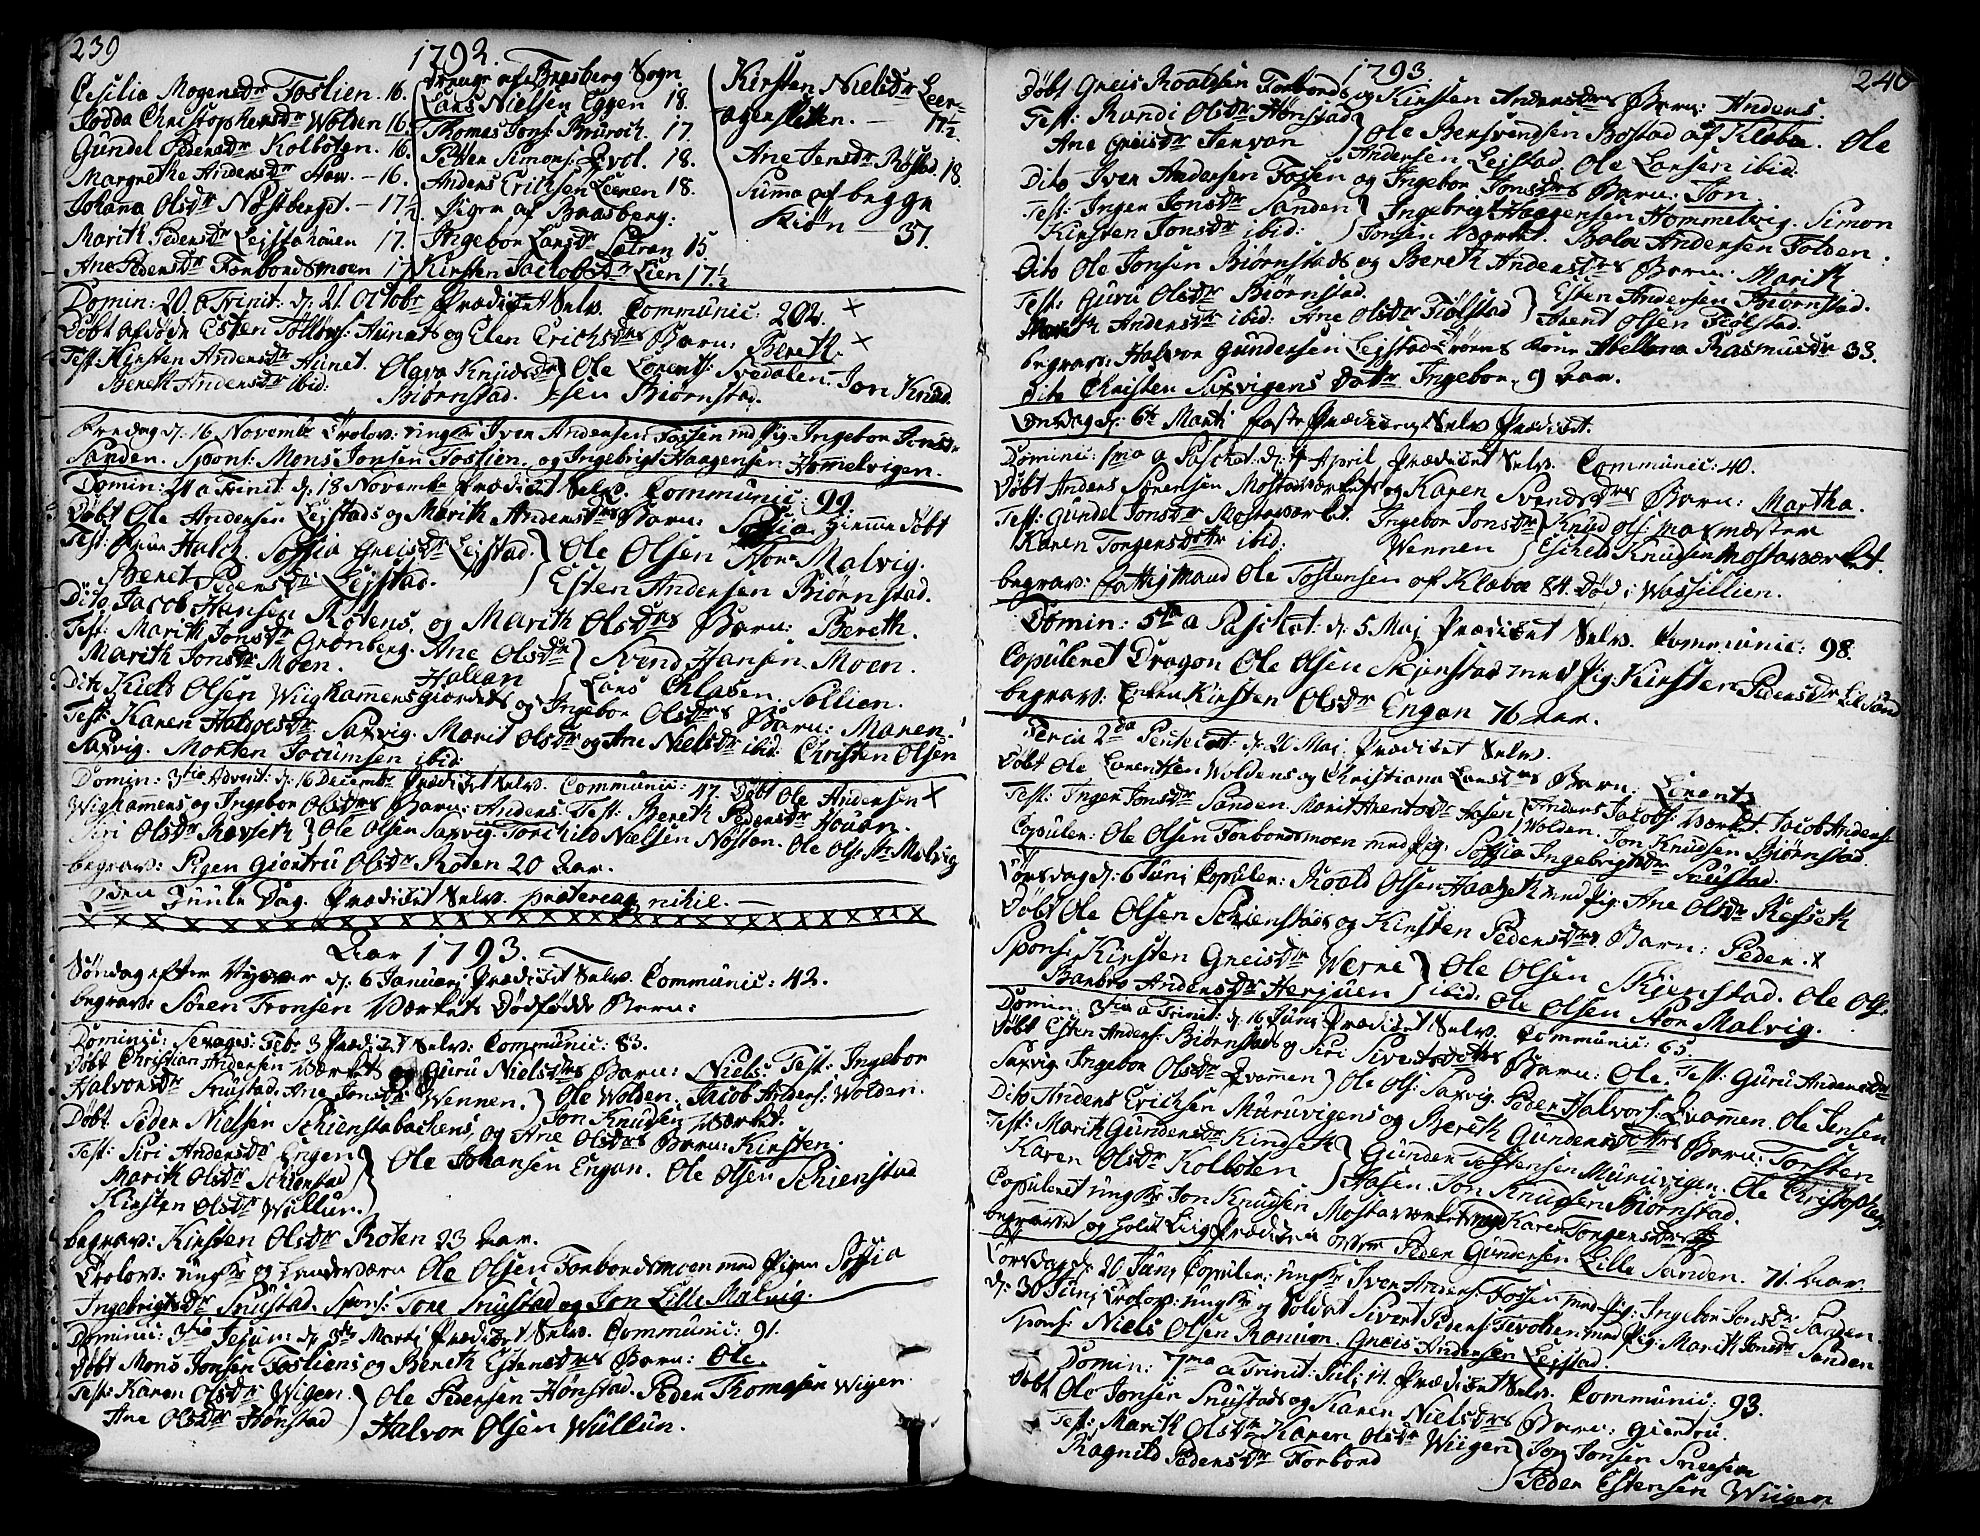 239
1792.
Cesilia Mogensdr Foslien. 16.
Jodda Christophersdr Wolden 16.
Gundel Pedersdr Kolboten. 16.
Margrethe Andersdr Haw. - 16.
Johana Olsdr Nøstberget. - 17½
Marith Pedersdr Leistahouen 17.
Ane Pedersdr Forbordsmoen 17
Drenge af Braasberg Sogn
Lars Nielsen Eggen 18.
Thomas Jons: Bruroch. 17.
Petter Simons: Qvol. 18.
Anders Erichsen Leeren 18.
Pigen af Baasberg:
Ingebor Larsdr Letran 15.
Kirsten Jacobsdr Lien 17½
Kirsten Nielsdr Leer-
agersletten. - 17½
Ane Jensdr Røstad. 18.
Summa af begge
Kiøn - 37.
Domin: 20 a Trinit: d. 21 Octobr Prædiket Selv. Communic: 202. x
Døbt Esten Tølløvs: Hunets og Elen Erichsdrs Barn: Bereth. x
Test: Kirsten Andersdr Hunet. Olava Knudsdr Ole Lorents: Svedalen. Jon Knud
Bereth Andersdr ibid: Biørnstad. -sen Biørnstad.
Fredag d. 16 Novembr Trolov: ungkr Iver Andersen Fossen md Pig: Ingebor Jonsdr
Sanden. Spons: Mons Jonsen Foslien. og Ingebrigt Haagensen Hommelvigen.
Domin: 24 a Trinit: d. 18 Novembr Prædiket Selv. Communic: 99
Døbt Ole Andersen Leistads og Marith Andersdrs Barn: Sophia. hiemme døbt
Test: Halch. Sophia Greisdr Leistad. Ole Olsen Stor Malvig.
Beret Pedersdr: Leistad. Esten Andersen Biørnstad.
Dito Jacob Hansen Rotens og Marith Olsdrs Barn: Bereth.
Test: Marith Jonsdr Grønberg. Ane Olsdr Svend Hansen Moen.
Marith Jonsdr Moen. Hallan Lars Clasen Sollien.
Dito Kield Olsen Wiighammersgiordets og Ingebor Olsdrs Barn: Maren.
Test: Karen Halvorsdr Saxvig. Marit Olsdr og Ane Nielsdr ibid: Christen Olsen
Saxvig. Morten Jocumsen ibid:
Domin: 3tia Advent: d. 16 Decembr Prædiket Selv. Communic: 47. Døbt Ole Andersen x
Wighammens og Ingebor Olsdrs Barn: Anders. Test: Bereth Pedersdr Houen.
Siri Olsdr Revseth Ole Olsen Saxvig. Torchild Nielsen Nøsten. Ole Ols: Str Malvig
begrav: Pigen Giertru Olsdr Roten 20 Aar.
2den Juule Dag. Prædiket Selv. præterea nihil. -
Aar 1793.
Søndag efter Nyaar d. 6 Januarj Prædiket Selv. Communic: 42.
begrav: Søren Tronsen Værkets Dødfødde Barn:
Dominic: Sexages: Febr 3 Prædiket Selv. Communic: 83.
Døbt Christian Andersen Værket og Guru Nielsdrs Barn: Niels. Test: Ingebor
Halvorsdr Snustad. Ane Jonsdr Wennen. Ole Wolden. Jacob Anders: Wolden.
Jon Knudsen Værket.
Døbt Peder Nielsen Schienstabachens og Ane Olsdrs Barn: Kirsten.
Test: Siri Andersdr Engen Ole Johansen Engan. Ole Olsen Schienstad
Marith Olsdr Schienstad
Kirsten Olsdr Wullun.
begrav: Kirsten Olsdr Roten 23 Aar.
Trolov: ungkr og Ole Olsen Forbordsmoen med Pigen Sophia
Ingebrigtsdr Snustad. Spons: Tore Snustad og Jon Lille Malvig.
Dominic: 3tia Jejun: d. 3die Martj Prædiket Selv. Communic: 91.
Døbt Mons Jonsen Fosliens og Bereth Estensdrs Barn: Ole.
Test: Karen Olsdr Wigen. Ole Pedersen Hønstad. Peder Thomasen Wigen.
Ane Olsdr Hønstad Halvor Olsen Wullun.
1793.
240
Døbt Greis Roaldsen Forbords og Kirsten Andersdrs Barn: Anders.
Test: Randi Olsdr Hønstad Ole Bersvendsen Bostad af Klæbo. Ole
Ane Greisdr Jervan Andersen Leistad. Ole Larsen ibid:
Dito Iver Andersen Fossen og Ingebor Jonsdrs Barn: Jon.
Test: Inger Jonsdr Sanden Ingebrigt Haagensen Hommelvig. Simon
Kirsten Jonsdr ibid: Jonsen Værket. Andersen Folden.
Dito Ole Jonsen Biørnstads og Bereth Andersdrs Barn: Marith
Test: Guru Olsdr Biørnstad. Esten Andersen Biørnstad.
Marith Andersdr ibid: Ane Olsdr Fiølstad Arent Olsen Fiølstad.
begrav: Halvor Gundersen Leistad Kone Hellena Rasmusdr 33.
Dito Christen Saxvigens Dottr Ingebor. 9 Aar.
Onsdag d. 6te Martj faste Prædiken Selv Prædiket.
Dominic: 1ma a Paschat: d. 7 April Prædiket Selv. Communic: 40.
Døbt Anders Sørensen Mostaværkets og Karen Svendsdrs Barn: Martha.
Test: Gundel Jonsdr Mostaværket. Ingebor Jonsdr Knud Ols: masmæster
Karen Torgersdr ibid: Wennen Eschild Knudsen Mostaværket.
begrav: fattig Mand Ole Tostensen af Klæbo 84. Død i Wassillien.
Domin: 5ta a Paschat: d. 5 Maj Prædiket Selv. Communic: 98.
Copuleret Dragon Ole Olsen Skjenstad med Pig Kirsten Pedersdr Lil Sand
begrav: Enken Kirsten Olsdr Engan 76 Aar.
Feria 2da Pentecost: d. 20 Maj Prædiket Selv.
Døbt Ole Larentsen Woldens og Christiana Larsdrs Barn: Lorents
Test: Inger Jonsdr Sanden. Marit Arentsdr Aasen Anders Jacobs: Værket. Jacob Anders:
Wolden. Jon Knudsen Biørnstad.
Copuler: Ole Olsen Forbordsmoen med Pig: Sophia Ingebrigtsdr Snustad.
Torsdag d. 6 Junj Copuler: Roald Olsen Haagseth med Pig: Ane Olsdr Refseth
Døbt Ole Olsen Schienstads og Kirsten Pedersdrs Barn: Peder. x
Spons: Kirsten Greisdr Werne Ole Olsen Skjenstad. Ole Ols:
Barbro Andersdr Herjuen ibid: Ole Olsen Stor Malvig.
Domin: 3tia a Trinit: d. 16 Junj Prædiket Selv. Communic: 65.
Døbt Esten Anders: Biørnstads og Siri Sivertsdotters Barn: Ole. Test: Guru Andersdr
Saxvig. Ingebor Olsdr Qvammen Ole Ols: Saxvig. Peder Halvors: Qvammen. Ole Jensen
Dito Anders Erichsen Muruvigens og Bereth Gundersdotters Barn: Torsten
Test: Marith Gundersdr Kindseth Gunder Tostensen Muruvigen. Ole Christoph:
Karen Olsdr Kolboten Aasen. Jon Knudsen Biørnstad.
Copuleret ungkr Jon Knudsen Mostaværket med Karen Torgersdr
begravet og holdt Liig Prædiken over Peder Gundersen Lille Sanden. 71 Aar.
Torsdag d. 20 Junj Copuler: ungkr Iver Anders: Fossen med Pig: Ingebor Jonsdr Sanden.
d. 30 Junj Trolov: ungkr og Soldat Sivert Peders: Tivolden med Pig: Marith Jonsdr Sanden
Spons: Niels Olsen Ranium. Greis Andersen Leistad.
Domin: 7ma a Trinit: Julj 14 Prædiket Selv. Communic: 93.
Døbt Ole Jonsen Snustads og Karen Nielsdrs Barn: Giertru.
Test: Marith Olsdr Karen Olsdr Wiigen Jon Jonsen
Ragnild Pedersdr Forbord Peder Estensen Wiigen